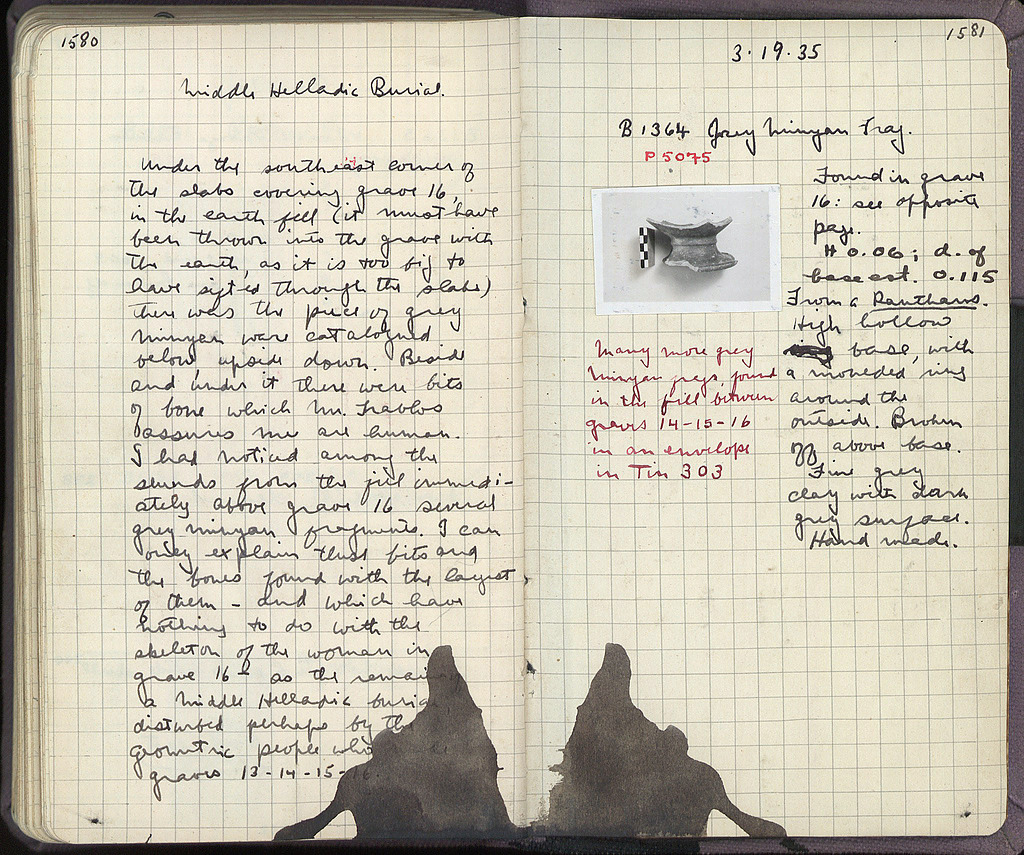 1580
Middle Helladic Burial.
Under the southeast corner of
the slabs covering grave 16,
in the earth fill (it must have
been thrown into the grave with
the earth, as it is too big to
have sifted through the slabs)
there was the piece of grey
minyan ware catalogued
below, upside down. Beside
and under it there were bits
of bone which Mr.
assures me are human.
I had noticed among the
sherds from the fill immedi-
ately above grave 16 several
grey minyan fragments. I can
only explain these bits and
the bones found with the largest
of them - and which have
nothing to do with the
skeleton of the woman in
grave 16 - as the
a middle Helladic
disturbed perhaps by the
geometric people
graves 13-14-15-16.
1581
3·19·35
B 1364 Grey Minyan Frag.
P 5075
Found in grave
16: see opposite
page.
H 0.06; d. of
base est. 0.115
From a Kantharos.
High hollow
base, with
a moulded ring
around the
outside. Broken
off above base.
Fine grey
clay with dark
grey surface.
Hand made.
Many more grey
Minyan frags. found
in the fill between
graves 14-15-16
in an envelope
in Tin 303